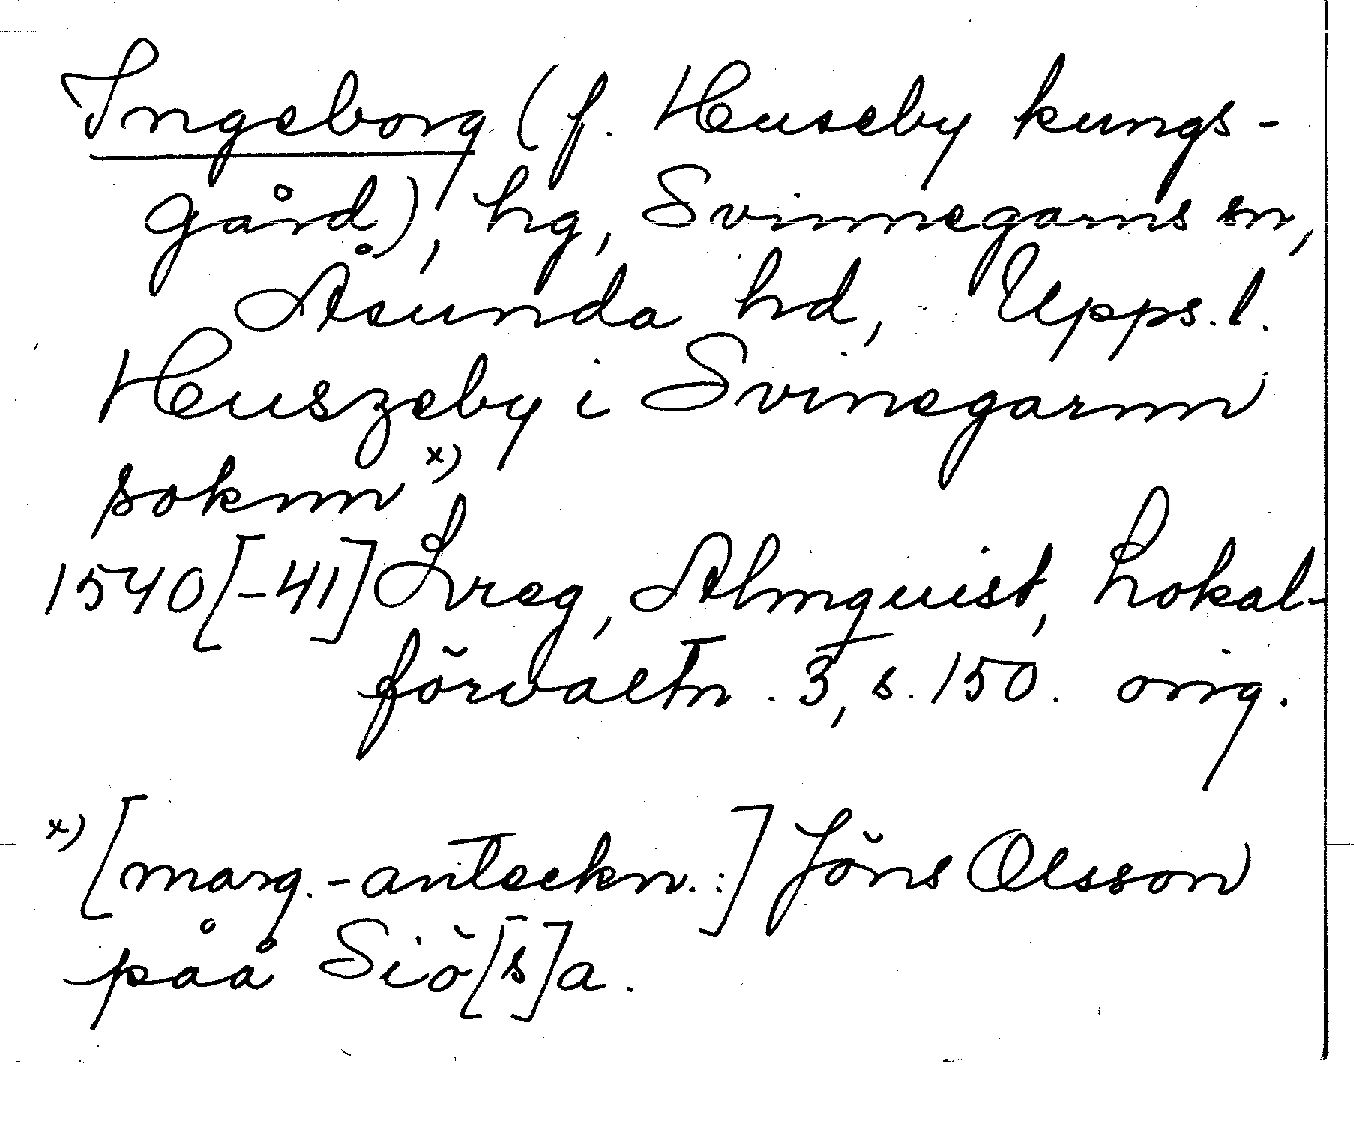 Ingeborg (f. Huseby kungs-
gård), hg, Svinnegarns sn,
Åsunda hd, Upps.l.
Huszeby i Svinegarnn
soknn x)
1540[-41] Lreg, Almquist, Lokal-
förvaltn. 3, s. 150. orig.
x) [marg.-anteckn.:] Jöns Olsson
påå Siö[s]a.